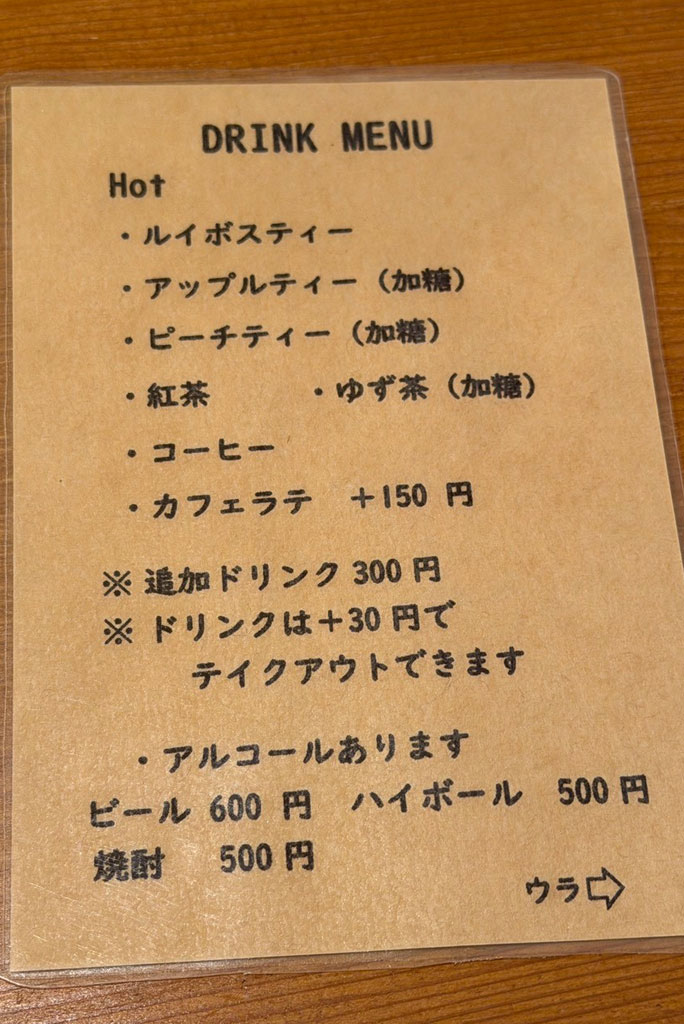 DRINK MENU
Hot
・ルイボスティー
・アップルティー（加糖）
・ピーチティー（加糖）
・紅茶　・ゆず茶（加糖）
・コーヒー
・カフェラテ　＋150 円
※ 追加ドリンク 300 円
※ ドリンクは＋30 円で
テイクアウトできます
・アルコールあります
ビール 600 円　ハイボール　500 円
焼酎　500 円
ウラ⇨